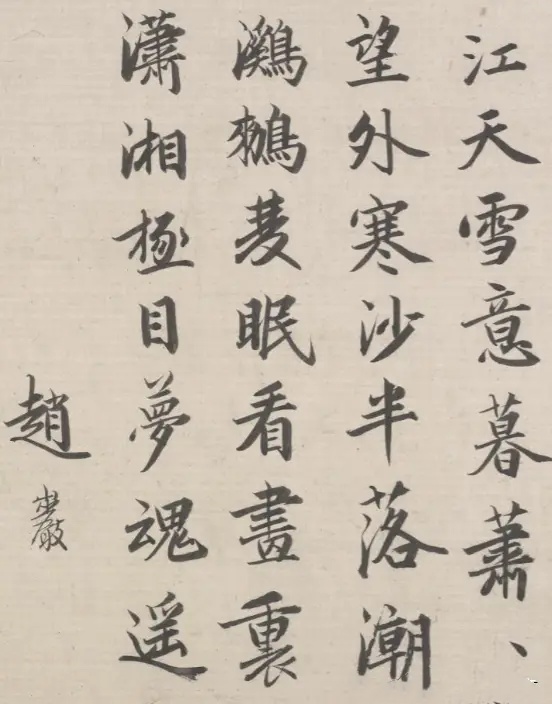 江天雪意暮蕭〻
望外寒沙半落潮
鸂鶒眠看畫裏
瀟湘極目夢魂遥
趙巖